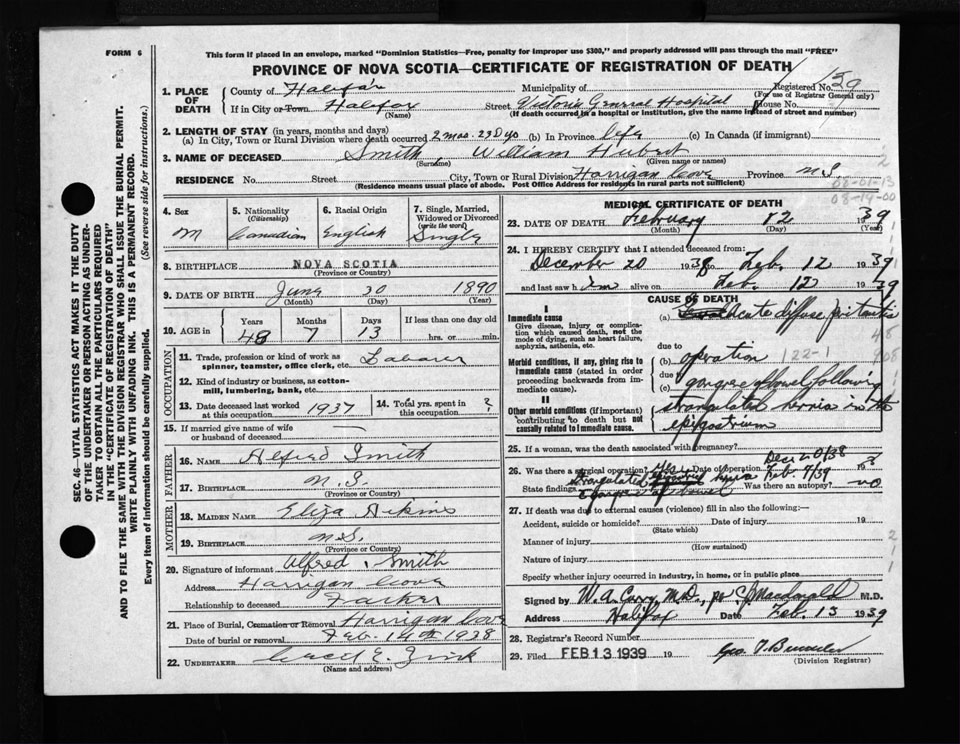 FORM 6
This form if placed in an envelope, marked "Dominion Statistics—Free, penalty for improper use $300," and properly addressed will pass through the mail "FREE"
PROVINCE OF NOVA SCOTIA—CERTIFICATE OF REGISTRATION OF DEATH
SEC. 46—VITAL STATISTICS ACT MAKES IT THE DUTY
OF THE UNDERTAKER OR PERSON ACTING AS UNDER-
TAKER TO OBTAIN ALL THE PARTICULARS REQUIRED
IN THE "CERTIFICATE OF REGISTRATION OF DEATH"
AND TO FILE THE SAME WITH THE DIVISION REGISTRAR WHO SHALL ISSUE THE BURIAL PERMIT.
WRITE PLAINLY WITH UNFADING INK. THIS IS A PERMANENT RECORD.
Every item of information should be carefully supplied. (See reverse side for instructions.)
1. PLACE OF DEATH
County of Halifax Municipality of Registered No. 159
(For use of Registrar General only)
If in City or Town Halifax Street Victoria General Hospital House No.
(Name) (If death occurred in a hospital or institution, give the name instead of street and number)
2. LENGTH OF STAY (in years, months and days)
(a) In City, Town or Rural Division where death occurred 2 mos. 23 Dys (b) In Province life (c) In Canada (if immigrant)
3. NAME OF DECEASED Smith, William Hubert
(Surname) (Given name or names)
RESIDENCE No. Street City, Town or Rural Division Harrigan Cove Province N.S
(Residence means usual place of abode. Post Office Address for residents in rural parts not sufficient)
08-01-13
08-14-00
4. Sex M
5. Nationality (Citizenship) Canadian
6. Racial Origin English
7. Single, Married, Widowed or Divorced (write the word) Single
8. BIRTHPLACE NOVA SCOTIA
(Province or Country)
9. DATE OF BIRTH June 30 1890
(Month) (Day) (Year)
10. AGE in Years Months Days If less than one day old
48 7 13 hrs. or min.
OCCUPATION
11. Trade, profession or kind of work as spinner, teamster, office clerk, etc. Laborer
12. Kind of industry or business, as cotton-mill, lumbering, bank, etc.
13. Date deceased last worked at this occupation 1937
14. Total yrs. spent in this occupation ?
15. If married give name of wife or husband of deceased —
FATHER
16. NAME Alfred Smith
17. BIRTHPLACE N.S.
(Province or Country)
MOTHER
18. MAIDEN NAME Eliza Aikins
19. BIRTHPLACE N.S.
(Province or Country)
20. Signature of informant Alfred Smith
Address Harrigan Cove
Relationship to deceased Father
21. Place of Burial, Cremation or Removal Harrigan Cove
Date of burial or removal Feb. 14th 1938
22. UNDERTAKER Cecil E. Zink
(Name and address)
MEDICAL CERTIFICATE OF DEATH
23. DATE OF DEATH February 12 1939
(Month) (Day) (Year)
24. I HEREBY CERTIFY that I attended deceased from:
December 20 1938 to Feb. 12 1939
and last saw him alive on Feb. 12 1939
CAUSE OF DEATH
Immediate cause
Give disease, injury or complication which caused death, not the mode of dying, such as heart failure, asphyxia, asthenia, etc.
(a) Acute diffuse peritonitis
due to
Morbid conditions, if any, giving rise to immediate cause (stated in order proceeding backwards from immediate cause).
(b) operation 122-1
due to
(c) gangrene of bowel following
II
Other morbid conditions (if important) contributing to death but not causally related to immediate cause.
strangulated hernia in the
epigastrium
25. If a woman, was the death associated with pregnancy?
26. Was there a surgical operation? Yes Date of operation Dec 20/38 Feb. 7/39 19
State findings Strangulated hernia
Was there an autopsy? no
27. If death was due to external causes (violence) fill in also the following:—
Accident, suicide or homicide? Date of injury 19
(State which)
Manner of injury
(How sustained)
Nature of injury
Specify whether injury occurred in industry, in home, or in public place
Signed by W. A. Curry, M.D., per Macdonald M.D.
Address Halifax Date Feb. 13 1939
28. Registrar's Record Number
29. Filed FEB 13 1939 19
(Division Registrar)